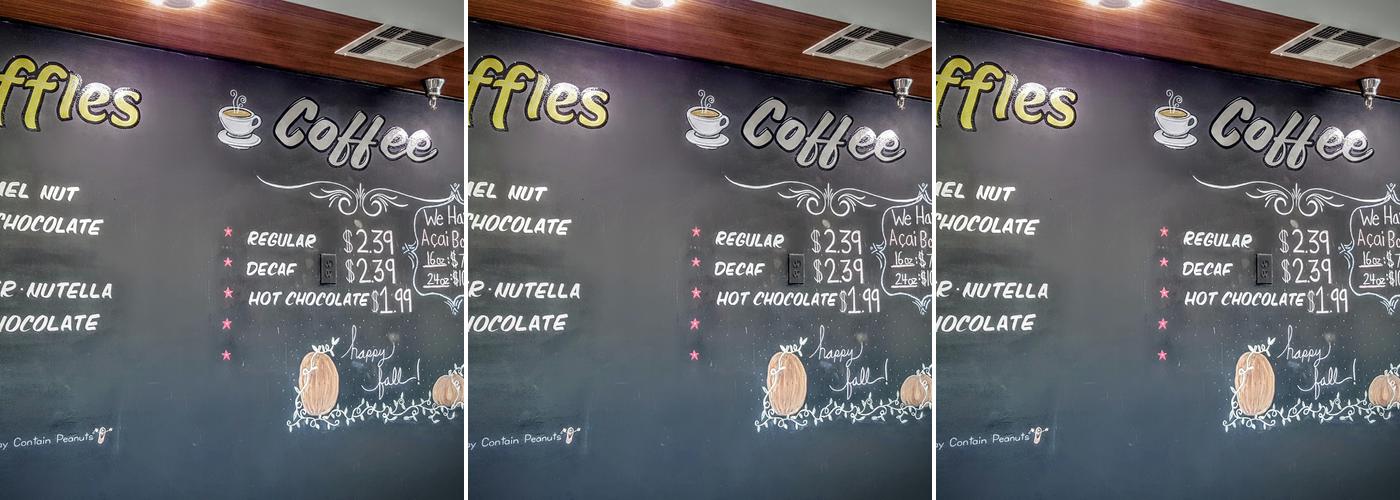 ffles
EL NUT
CHOCOLATE
R · NUTELLA
HOCOLATE
ay Contain Peanuts
Coffee
REGULAR $2.39
DECAF $2.39
HOT CHOCOLATE $1.99
We Ha
Açai Bo
16oz:$7
24oz:$1
happy
fall!
ffles
EL NUT
CHOCOLATE
R · NUTELLA
HOCOLATE
ay Contain Peanuts
Coffee
REGULAR $2.39
DECAF $2.39
HOT CHOCOLATE $1.99
We Ha
Açai Bo
16oz:$7
24oz:$1
happy
fall!
ffles
EL NUT
CHOCOLATE
R · NUTELLA
HOCOLATE
ay Contain Peanuts
Coffee
REGULAR $2.39
DECAF $2.39
HOT CHOCOLATE $1.99
We Ha
Açai Bo
16oz:$7
24oz:$1
happy
fall!